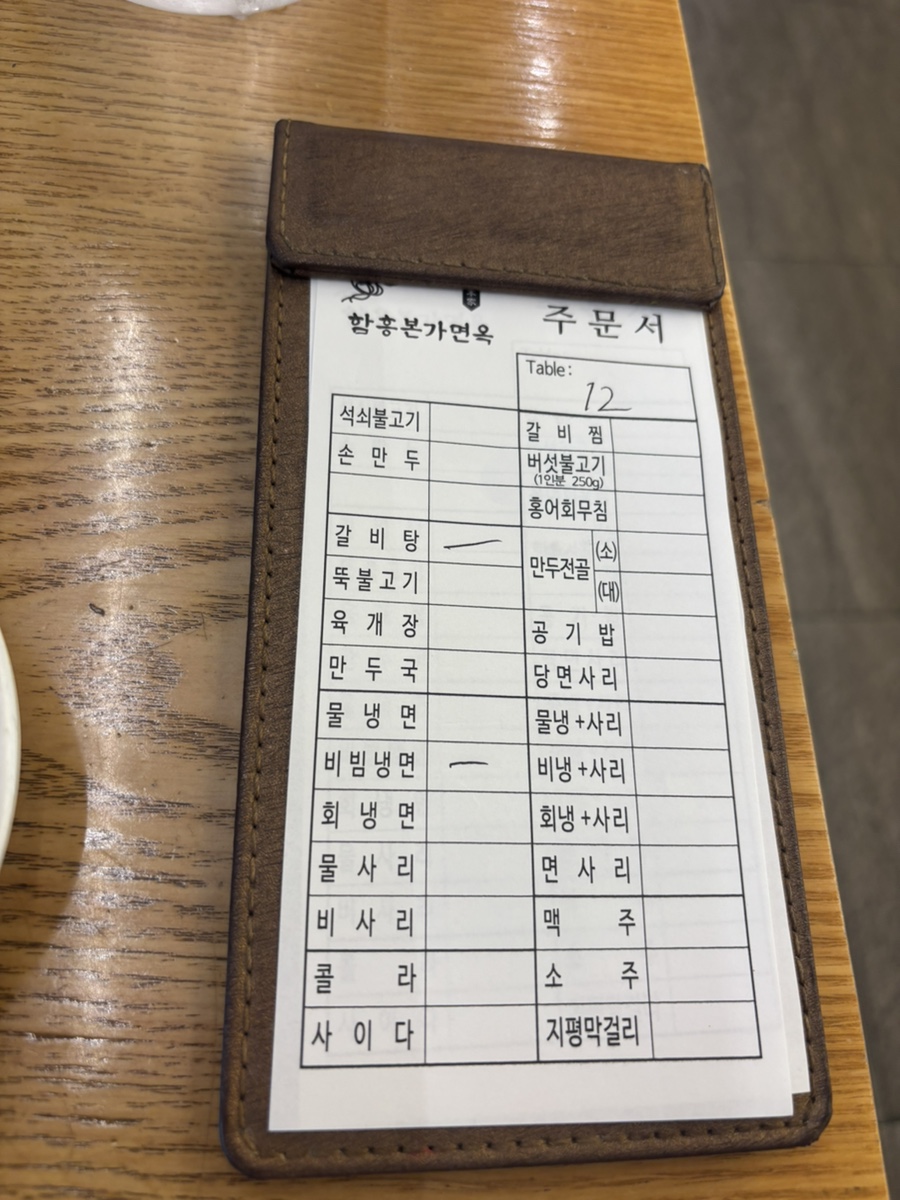 함흥본가면옥
주문서
Table:
12
석쇠불고기
갈비찜
손만두
버섯불고기
(1인분 250g)
홍어회무침
갈비탕
만두전골 (소)
뚝불고기
(대)
육개장
공기밥
만두국
당면사리
물냉면
물냉+사리
비빔냉면
비냉+사리
회냉면
회냉+사리
물사리
면사리
비사리
맥주
콜라
소주
사이다
지평막걸리